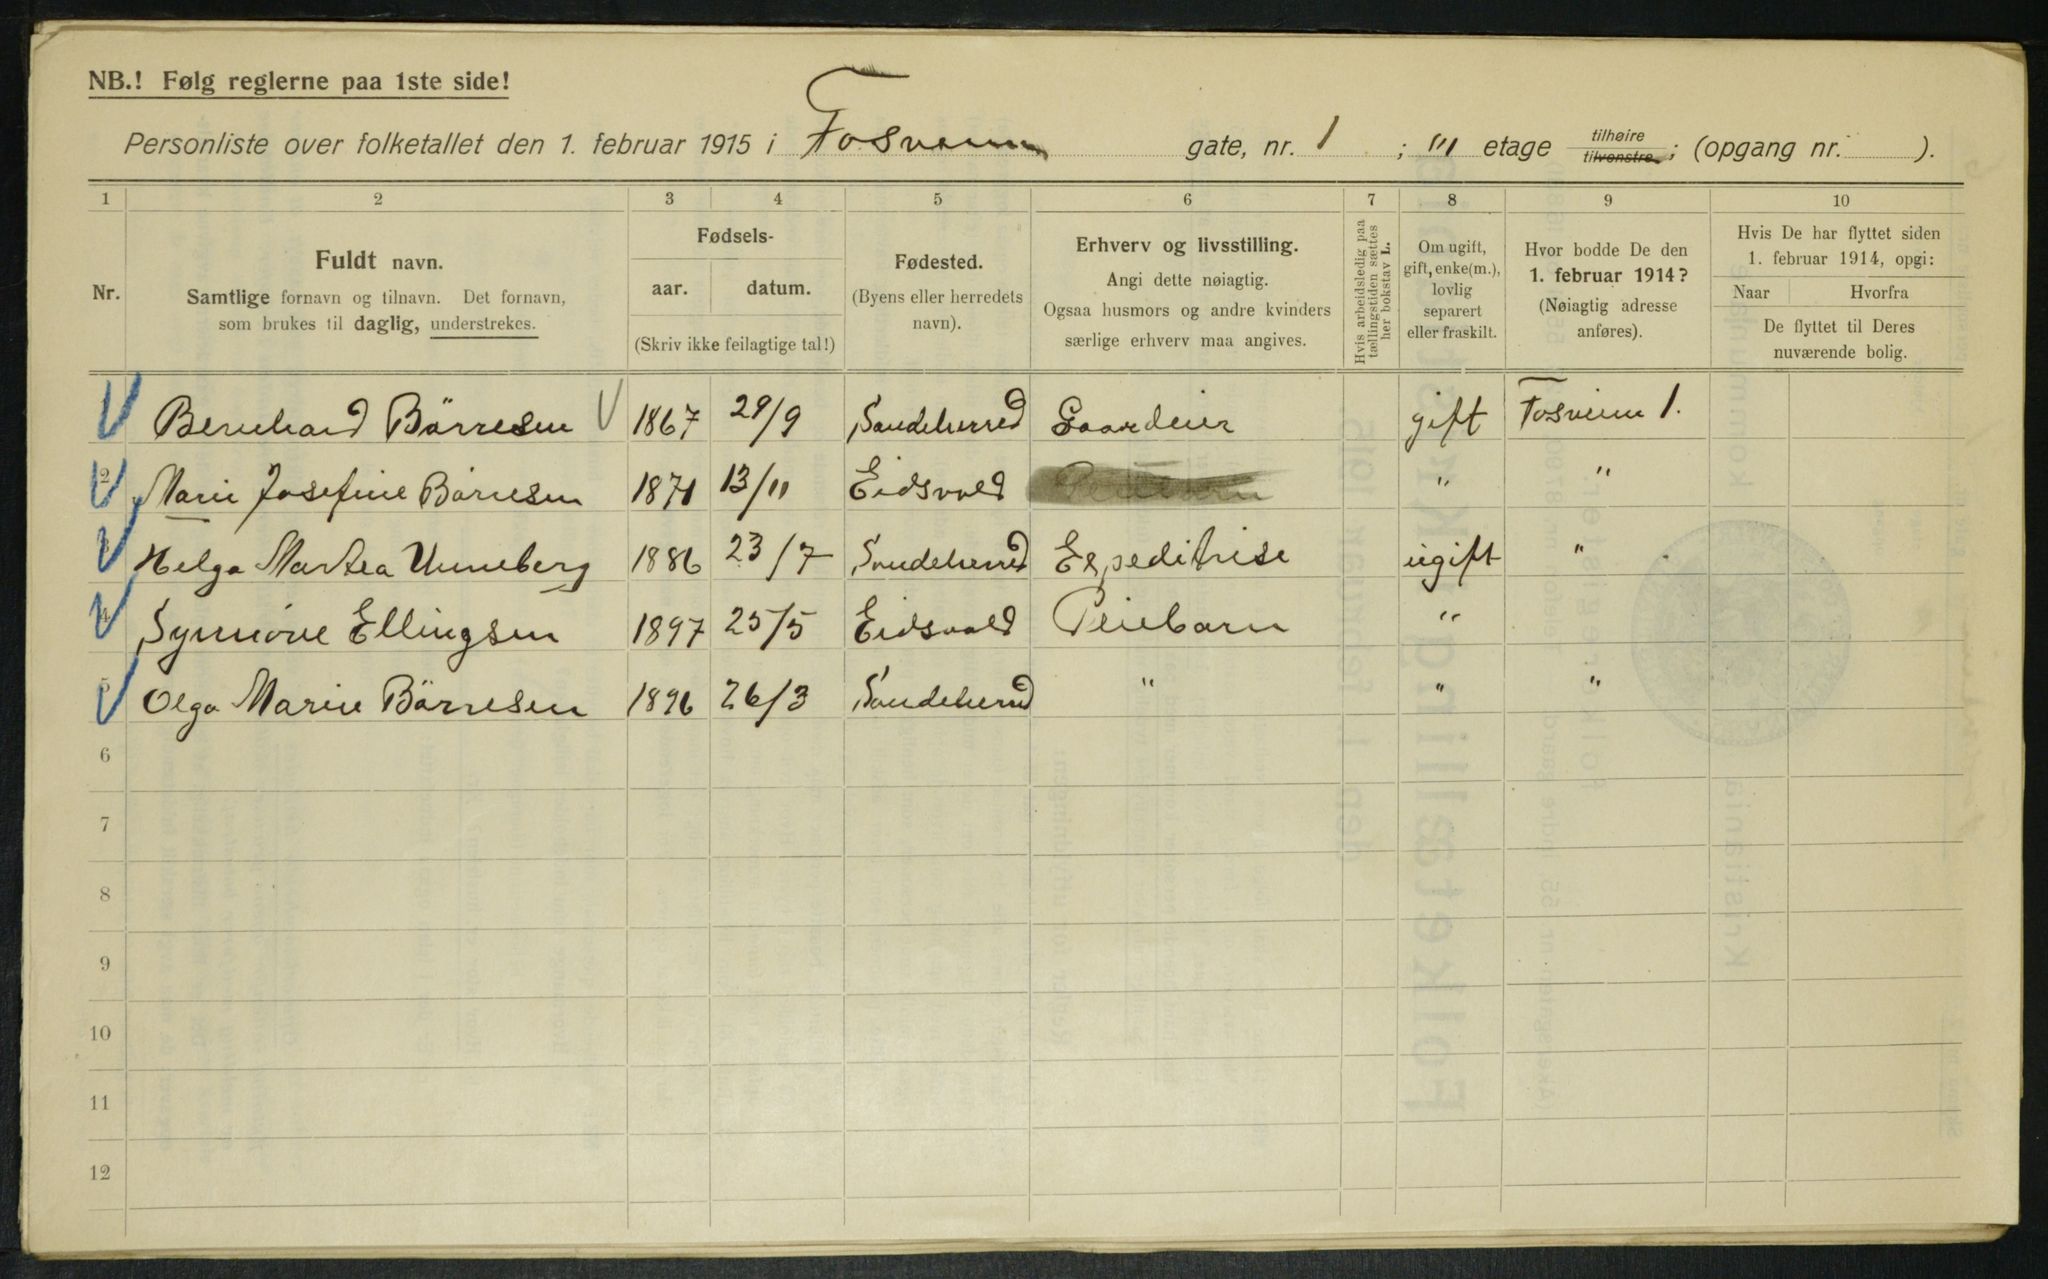 NB.! Følg reglerne paa 1ste side!
Personliste over folketallet den 1. februar 1915 i Fosveien gate, nr. 1 ; III etage tilhøire tilvenstre; (opgang nr. ).
1 2 3 4 5 6 7 8 9 10
Nr.
Fuldt navn.
Samtlige fornavn og tilnavn. Det fornavn,
som brukes til daglig, understrekes.
Fødsels-
aar. datum.
(Skriv ikke feilagtige tal!)
Fødested.
(Byens eller herredets
navn).
Erhverv og livsstilling.
Angi dette nøiagtig.
Ogsaa husmors og andre kvinders
særlige erhverv maa angives.
Hvis arbeidsledig paa
tællingstiden sættes
her bokstav L.
Om ugift,
gift, enke(m.),
lovlig
separert
eller fraskilt.
Hvor bodde De den
1. februar 1914?
(Nøiagtig adresse
anføres).
Hvis De har flyttet siden
1. februar 1914, opgi:
Naar Hvorfra
De flyttet til Deres
nuværende bolig.
Bernhard Börresen 1867 29/9 Sandeherred Gaardeier gift Fosveien 1.
2 Marie Josefine Börresen 1871 13/11 Eidsvold " "
3 Helga Martea Unneberg 1886 23/7 Sandeherred Expeditrise ugift "
4 Synnöve Ellingsen 1897 25/5 Eidsvold Pleiebarn "
5 Olga Marie Börresen 1896 26/3 Sandeherred " " "
6
7
8
9
10
11
12